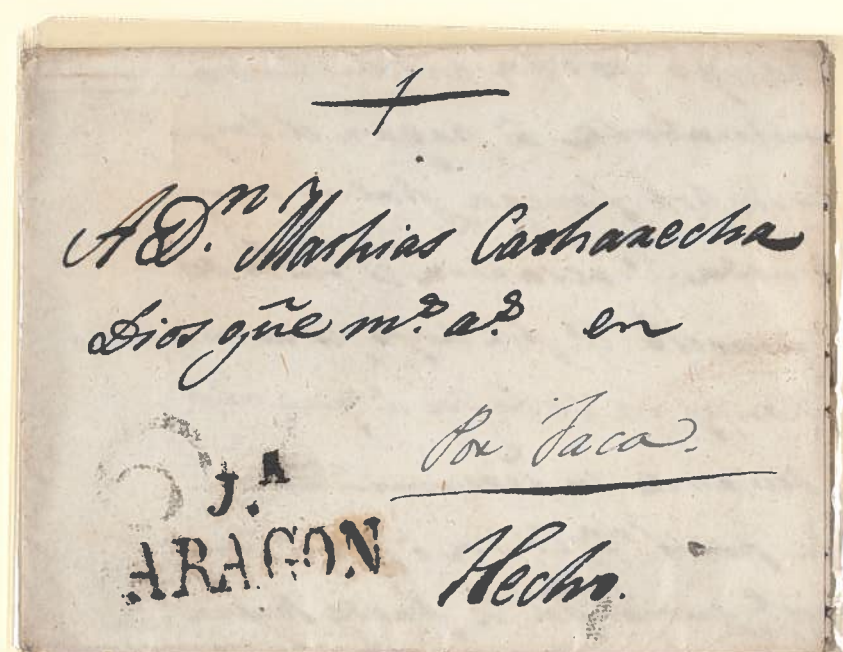 A D.n Mathias Catharecha
Dios gũe m.s a.s en
Por Jaca.
J.A
ARAGON
Hecho.